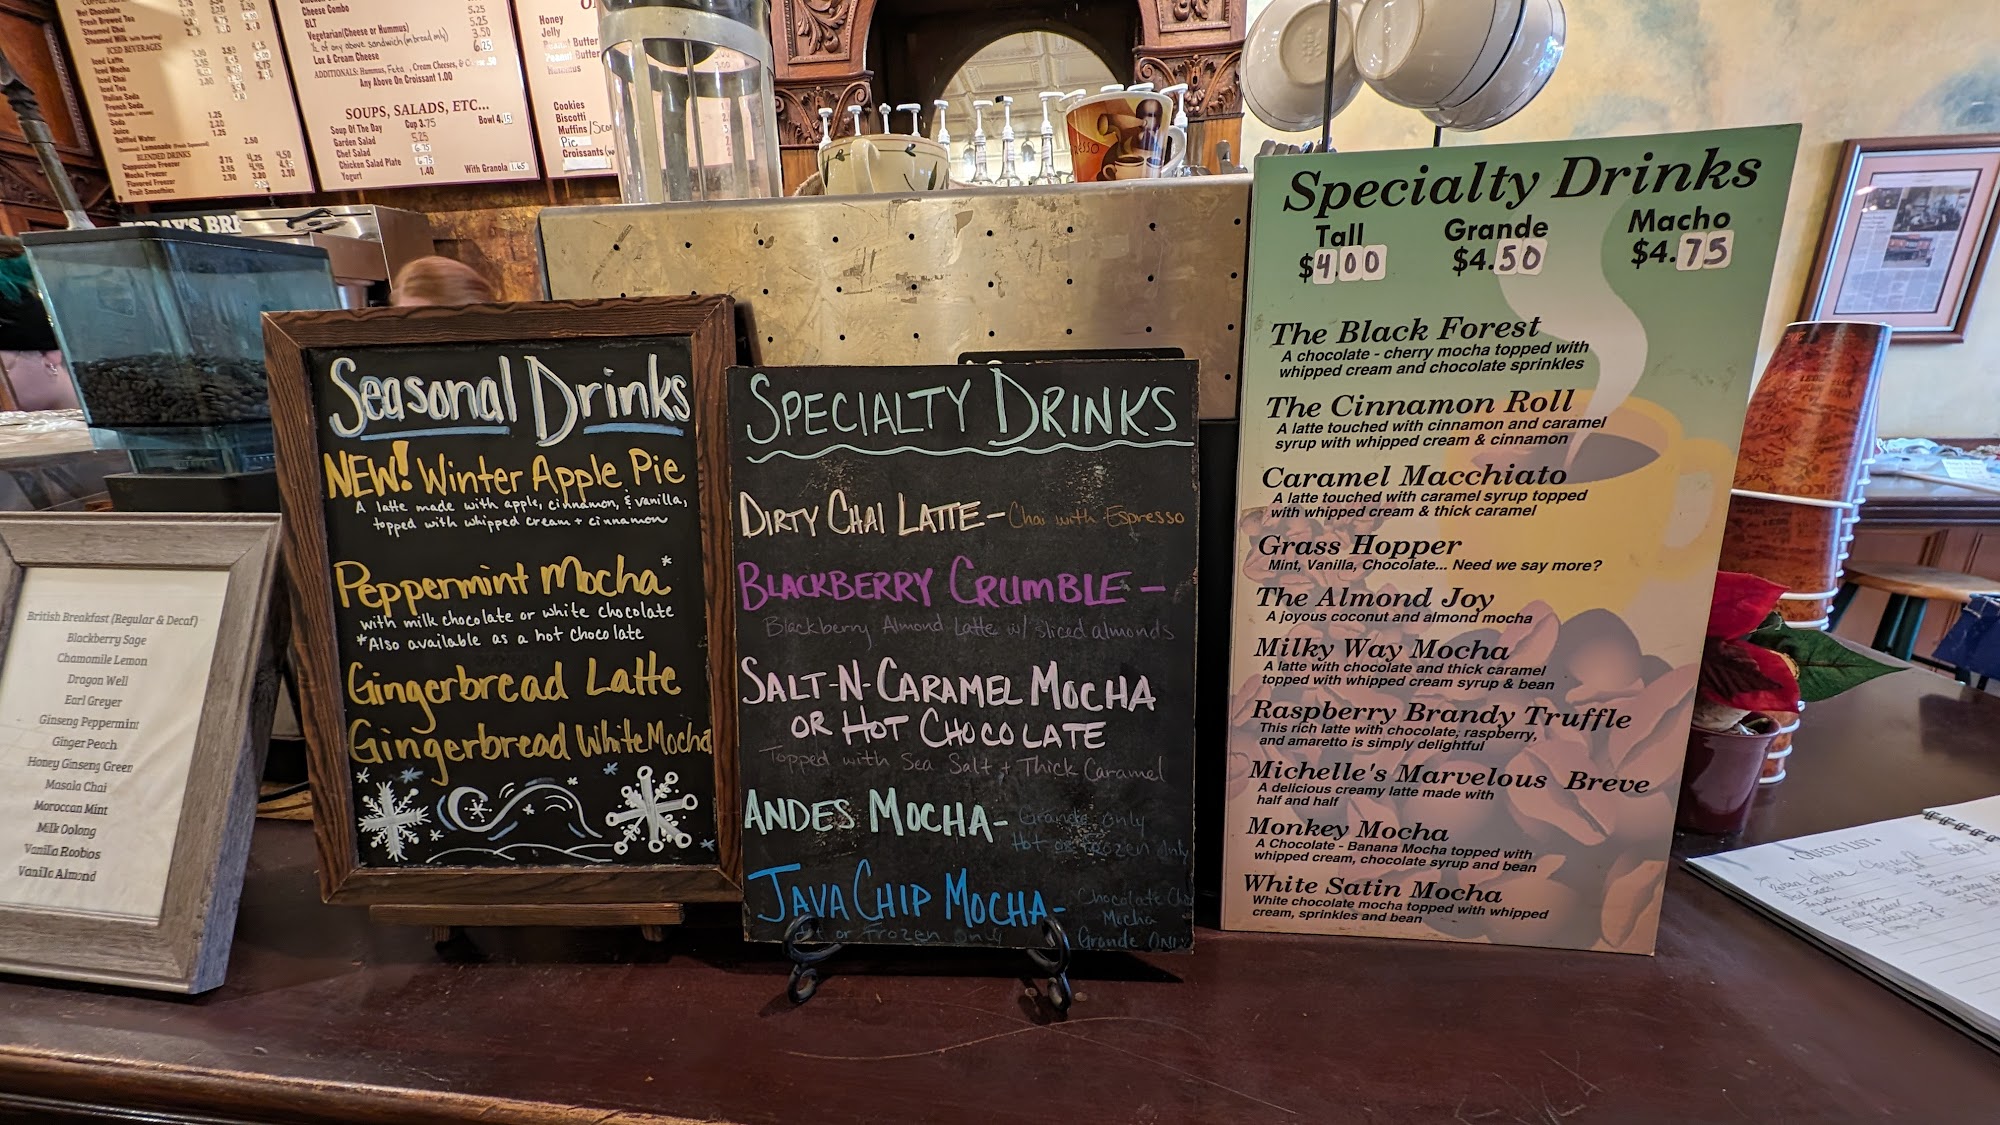 Hot Chocolate
Fresh Brewed Tea
Steamed Chai
Steamed Milk
ICED BEVERAGES
Iced Latte
Iced Mocha
Iced Chai
Iced Tea
Italian Soda
French Soda
Soda 1.25
Juice
Bottled Water 1.25
2.50
BLENDED DRINKS
Cappuccino Freezer 3.75 4.25 4.50
Mocha Freezer
Flavored Freezer
Fruit Smoothies
Cheese Combo 5.25
BLT 5.25
Vegetarian(Cheese or Hummus) 3.50
½ of any above sandwich (on bread only)
Lox & Cream Cheese 6.25
ADDITIONALS: Hummus, Feta, Cream Cheese, &
Any Above On Croissant 1.00
SOUPS, SALADS, ETC...
Soup Of The Day Cup 3.75 Bowl 4.15
Garden Salad 5.25
Chef Salad 6.75
Chicken Salad Plate 6.75
Yogurt 1.40 With Granola 1.65
Honey
Jelly
Peanut Butter
Hummus
Cookies
Biscotti
Muffins/Scon
Pie
Croissants
TODAY'S BRE
British Breakfast (Regular & Decaf)
Blackberry Sage
Chamomile Lemon
Dragon Well
Earl Greyer
Ginseng Peppermint
Ginger Peach
Honey Ginseng Green
Masala Chai
Moroccan Mint
Milk Oolong
Vanilla Roobios
Vanilla Almond
Seasonal Drinks
NEW! Winter Apple Pie
A latte made with apple, cinnamon, & vanilla,
topped with whipped cream + cinnamon
Peppermint Mocha*
with milk chocolate or white chocolate
*Also available as a hot chocolate
Gingerbread Latte
Gingerbread White Mocha
SPECIALTY DRINKS
DIRTY CHAI LATTE - Chai with Espresso
BLACKBERRY CRUMBLE -
Blackberry Almond Latte w/ sliced almonds
SALT-N-CARAMEL MOCHA
OR HOT CHOCOLATE
Topped with Sea Salt + Thick Caramel
ANDES MOCHA - Grande only
Hot or Frozen only
JAVA CHIP MOCHA - Chocolate Chip
Mocha
Hot or Frozen only Grande ONLY
Specialty Drinks
Tall Grande Macho
$4.00 $4.50 $4.75
The Black Forest
A chocolate - cherry mocha topped with
whipped cream and chocolate sprinkles
The Cinnamon Roll
A latte touched with cinnamon and caramel
syrup with whipped cream & cinnamon
Caramel Macchiato
A latte touched with caramel syrup topped
with whipped cream & thick caramel
Grass Hopper
Mint, Vanilla, Chocolate... Need we say more?
The Almond Joy
A joyous coconut and almond mocha
Milky Way Mocha
A latte with chocolate and thick caramel
topped with whipped cream syrup & bean
Raspberry Brandy Truffle
This rich latte with chocolate, raspberry,
and amaretto is simply delightful
Michelle's Marvelous Breve
A delicious creamy latte made with
half and half
Monkey Mocha
A Chocolate - Banana Mocha topped with
whipped cream, chocolate syrup and bean
White Satin Mocha
White chocolate mocha topped with whipped
cream, sprinkles and bean
GUEST LIST